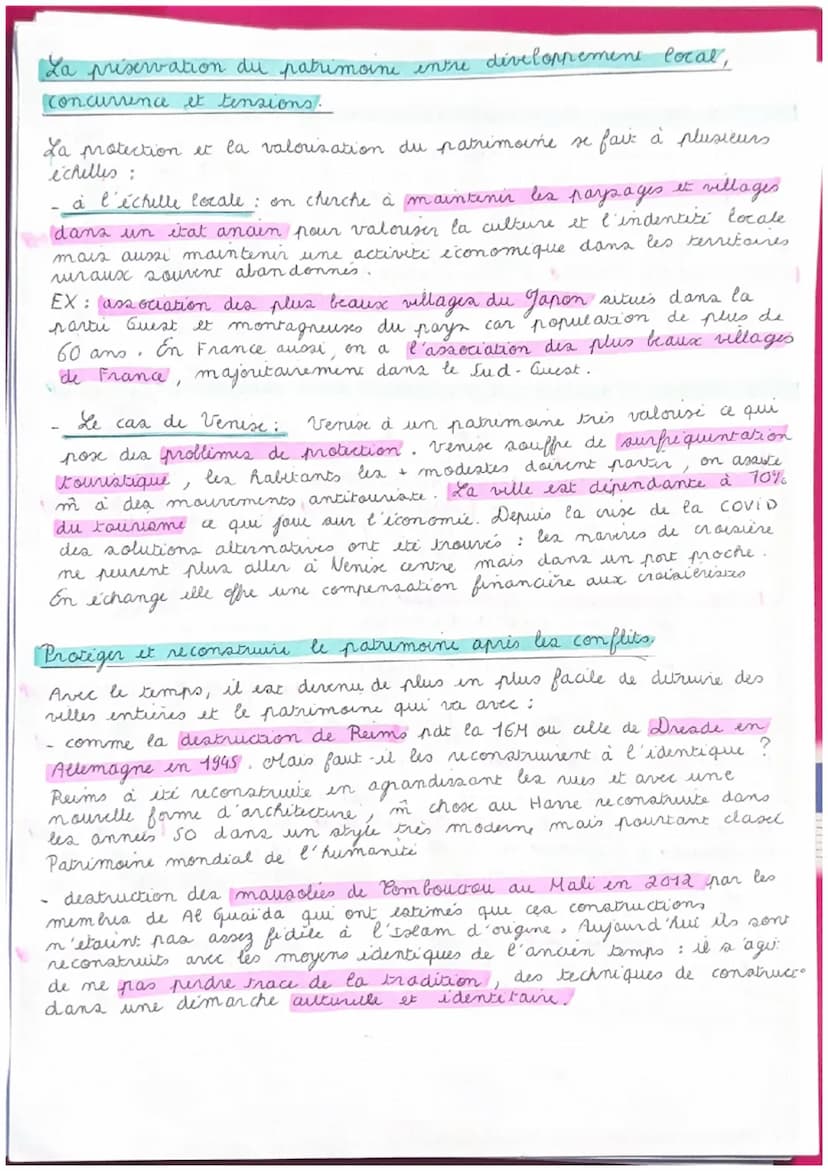 La préservation du patrimoine entre développement local,
concurrence et tensions.
La protection et la valorisation du patrimoine se fait à plusieurs
échelles :
- à l'échelle locale : on cherche à maintenir les paysages et villages
dans un état ancien pour valoriser la culture et l'indentité locale
mais aussi maintenir une activité économique dans les territoires
ruraux souvent abandonnés.
EX : association des plus beaux villages du Japon situés dans la
partie Ouest et montagneuses du pays car population de plus de
60 ans. En France aussi, on a l'association des plus beaux villages
de France, majoritairement dans le Sud-Ouest.
- Le cas de Venise : Venise à un patrimoine très valorisé ce qui
pose des problèmes de protection. Venise souffre de surfréquentation
touristique, les habitants les + modestes doivent partir, on assiste
m̂ à des mouvements antitouriste. La ville est dépendante à 70%
du tourisme ce qui joue sur l'économie. Depuis la crise de la COVID
des solutions alternatives ont été trouvés : les navires de croisière
ne peuvent plus aller à Venise centre mais dans un port proche.
En échange elle offre une compensation financière aux croisiéristes
Protéger et reconstruire le patrimoine après les conflits.
Avec le temps, il est devenu de plus en plus facile de détruire des
villes entières et le patrimoine qui va avec :
- comme la destruction de Reims pdt la 1GM ou celle de Dresde en
Allemagne en 1945. Mais faut-il les reconstruirent à l'identique ?
Reims à été reconstruite en agrandissant les rues et avec une
nouvelle forme d'architecture, m̂ chose au Havre reconstruite dans
les années 50 dans un style très moderne mais pourtant classé
Patrimoine mondial de l'humanité
- destruction des mausolées de Tombouctou au Mali en 2012 par les
membres de Al Quaïda qui ont estimés que ces constructions
n'étaient pas assez fidèle à l'Islam d'origine. Aujourd'hui ils sont
reconstruits avec les moyens identiques de l'ancien temps : il s'agit
de ne pas perdre trace de la tradition, des techniques de construc°
dans une démarche culturelle et identitaire.